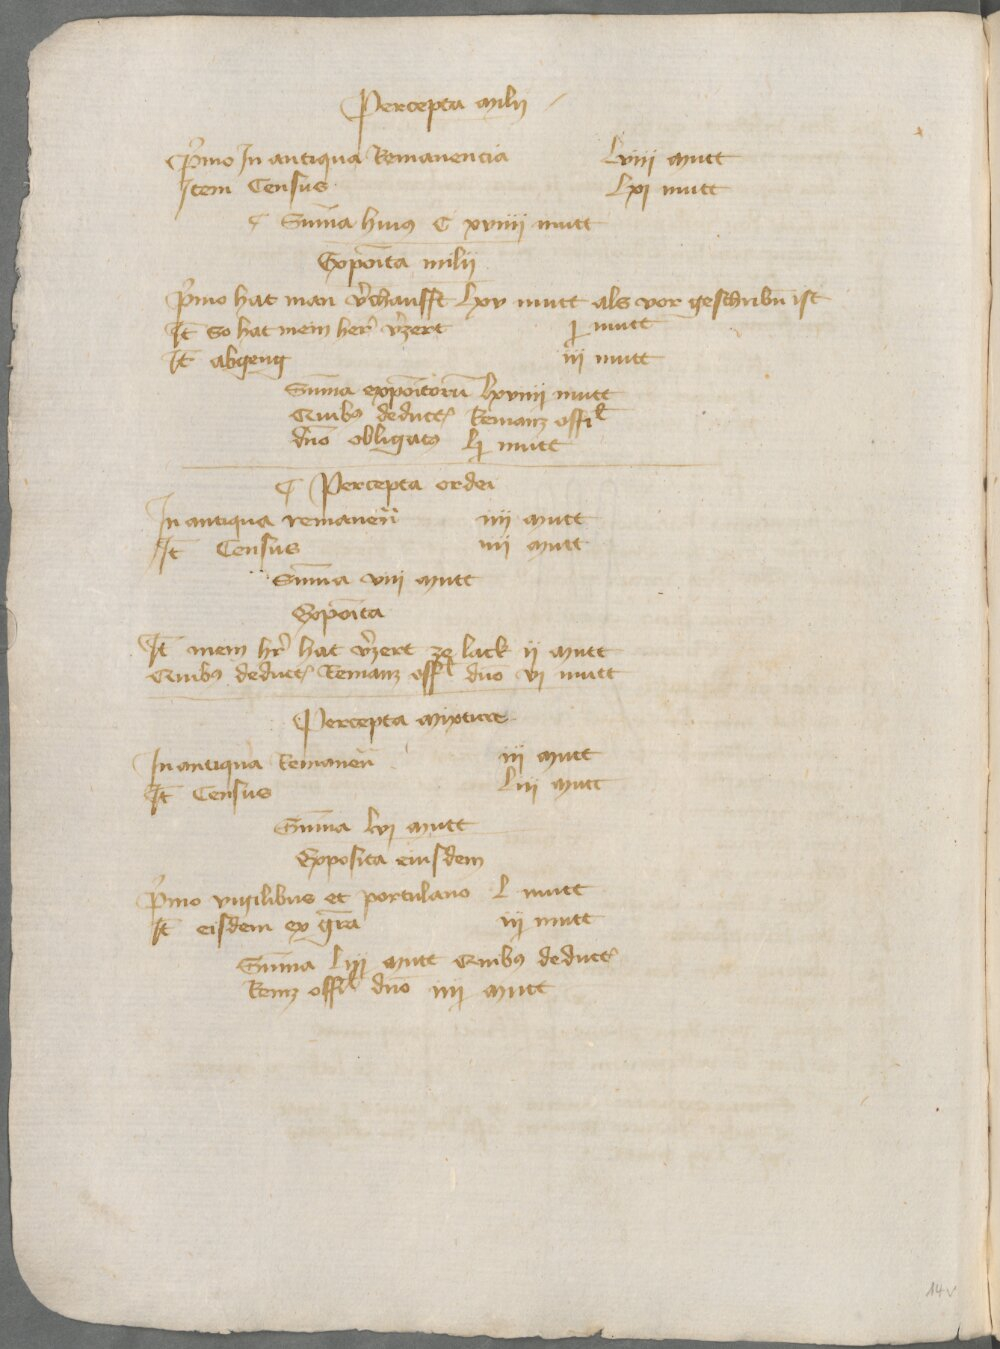 Percepta milij
P̾mo In antiqua Remanencia Lviiij mutt
Item Census Lxj mutt
¶ Sum̄a huiꝰ C xviiij mutt
Expoīta milij
P̾mo hat man v̾chaufft Lxv mutt als vor geschribn̄ ist
It̄ so hat mein her̾ v̾zert j mutt
It̄ abgeng iij mutt
Sum̄a expoītoru̅ Lxviiij mutt
Quibꝰ deduct̾ Remanꝫ offi̅l
dn̄o obligatꝰ Lj mutt
¶ Percepta ordei
In antiqua remanen̄ iiij mutt
It̄ Census iiij mutt
Sum̄a viij mutt
Expoīta
It̄ mein hr̾ hat v̾zert ze lack ij mutt
Quibꝰ deduct̾ Remanꝫ offl̄ dn̄o vj mutt
Percepta mixture
In antiqua Remanen̄ iij mutt
It̄ Census Liij mutt
Sum̄a Lvj mutt
Exposita eiusdem
P̾mo vigilibus et portulano L mutt
It̄ eisdem ex gr̄a iij mutt
Sum̄a Liij mutt Quibꝰ deduct̾
Remꝫ offil̄ dn̄o iiij mutt
14v